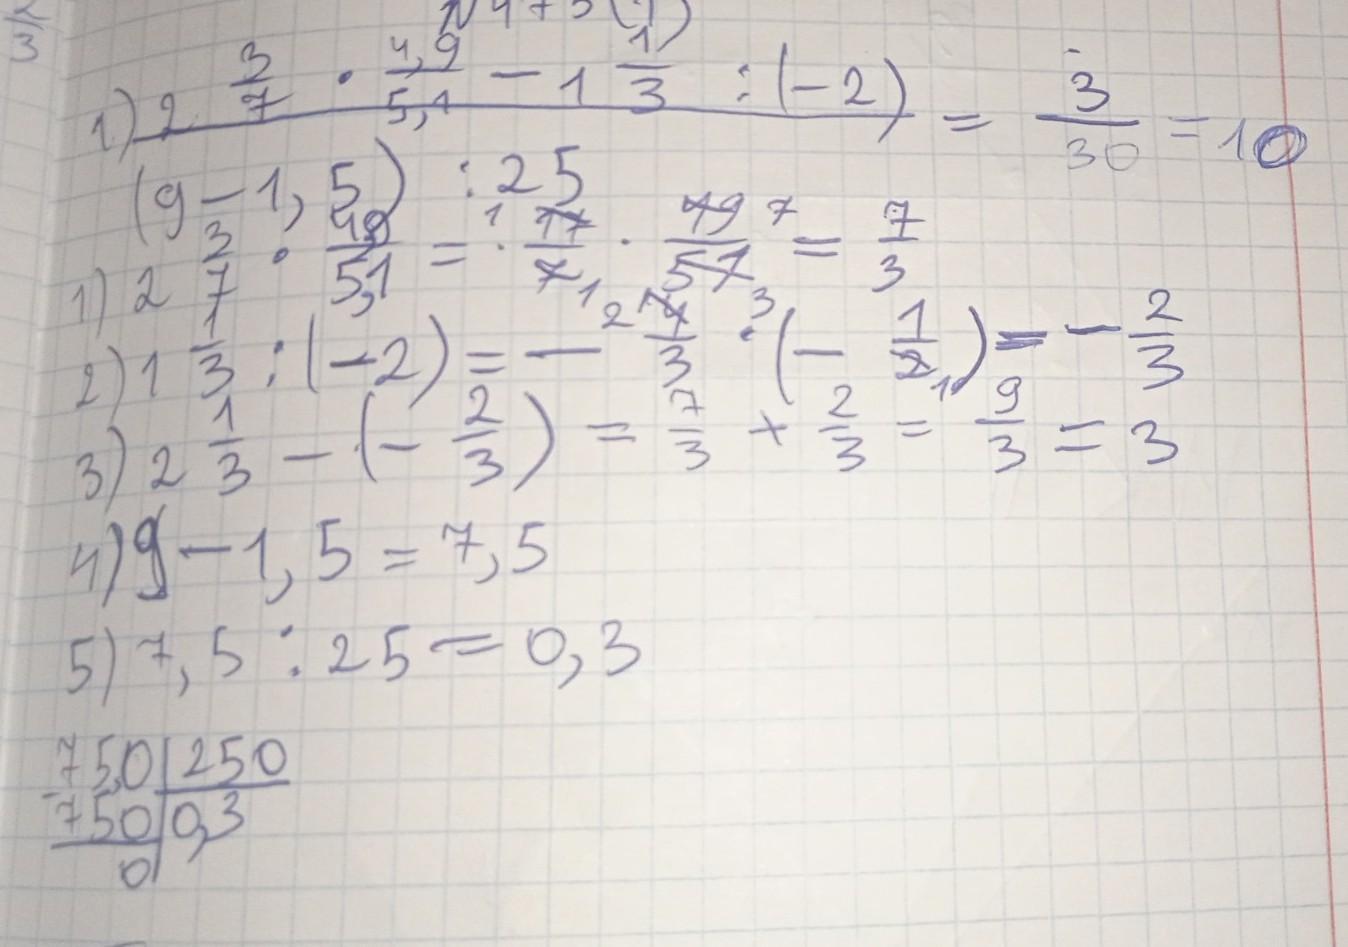 1) 2 3/7 · 4,9/5,1 − 1 1/3 : (−2) = 3/30 = 10
(9 − 1,5) : 25
1) 2 3/7 · 49/5,1 = 17/7 · 49/51 = 7/3
2) 1 1/3 : (−2) = − 4/3 · (− 1/2) = − 2/3
3) 2 1/3 − (− 2/3) = 7/3 + 2/3 = 9/3 = 3
4) 9 − 1,5 = 7,5
5) 7,5 : 25 = 0,3
75,0 | 250
750 | 0,3
0